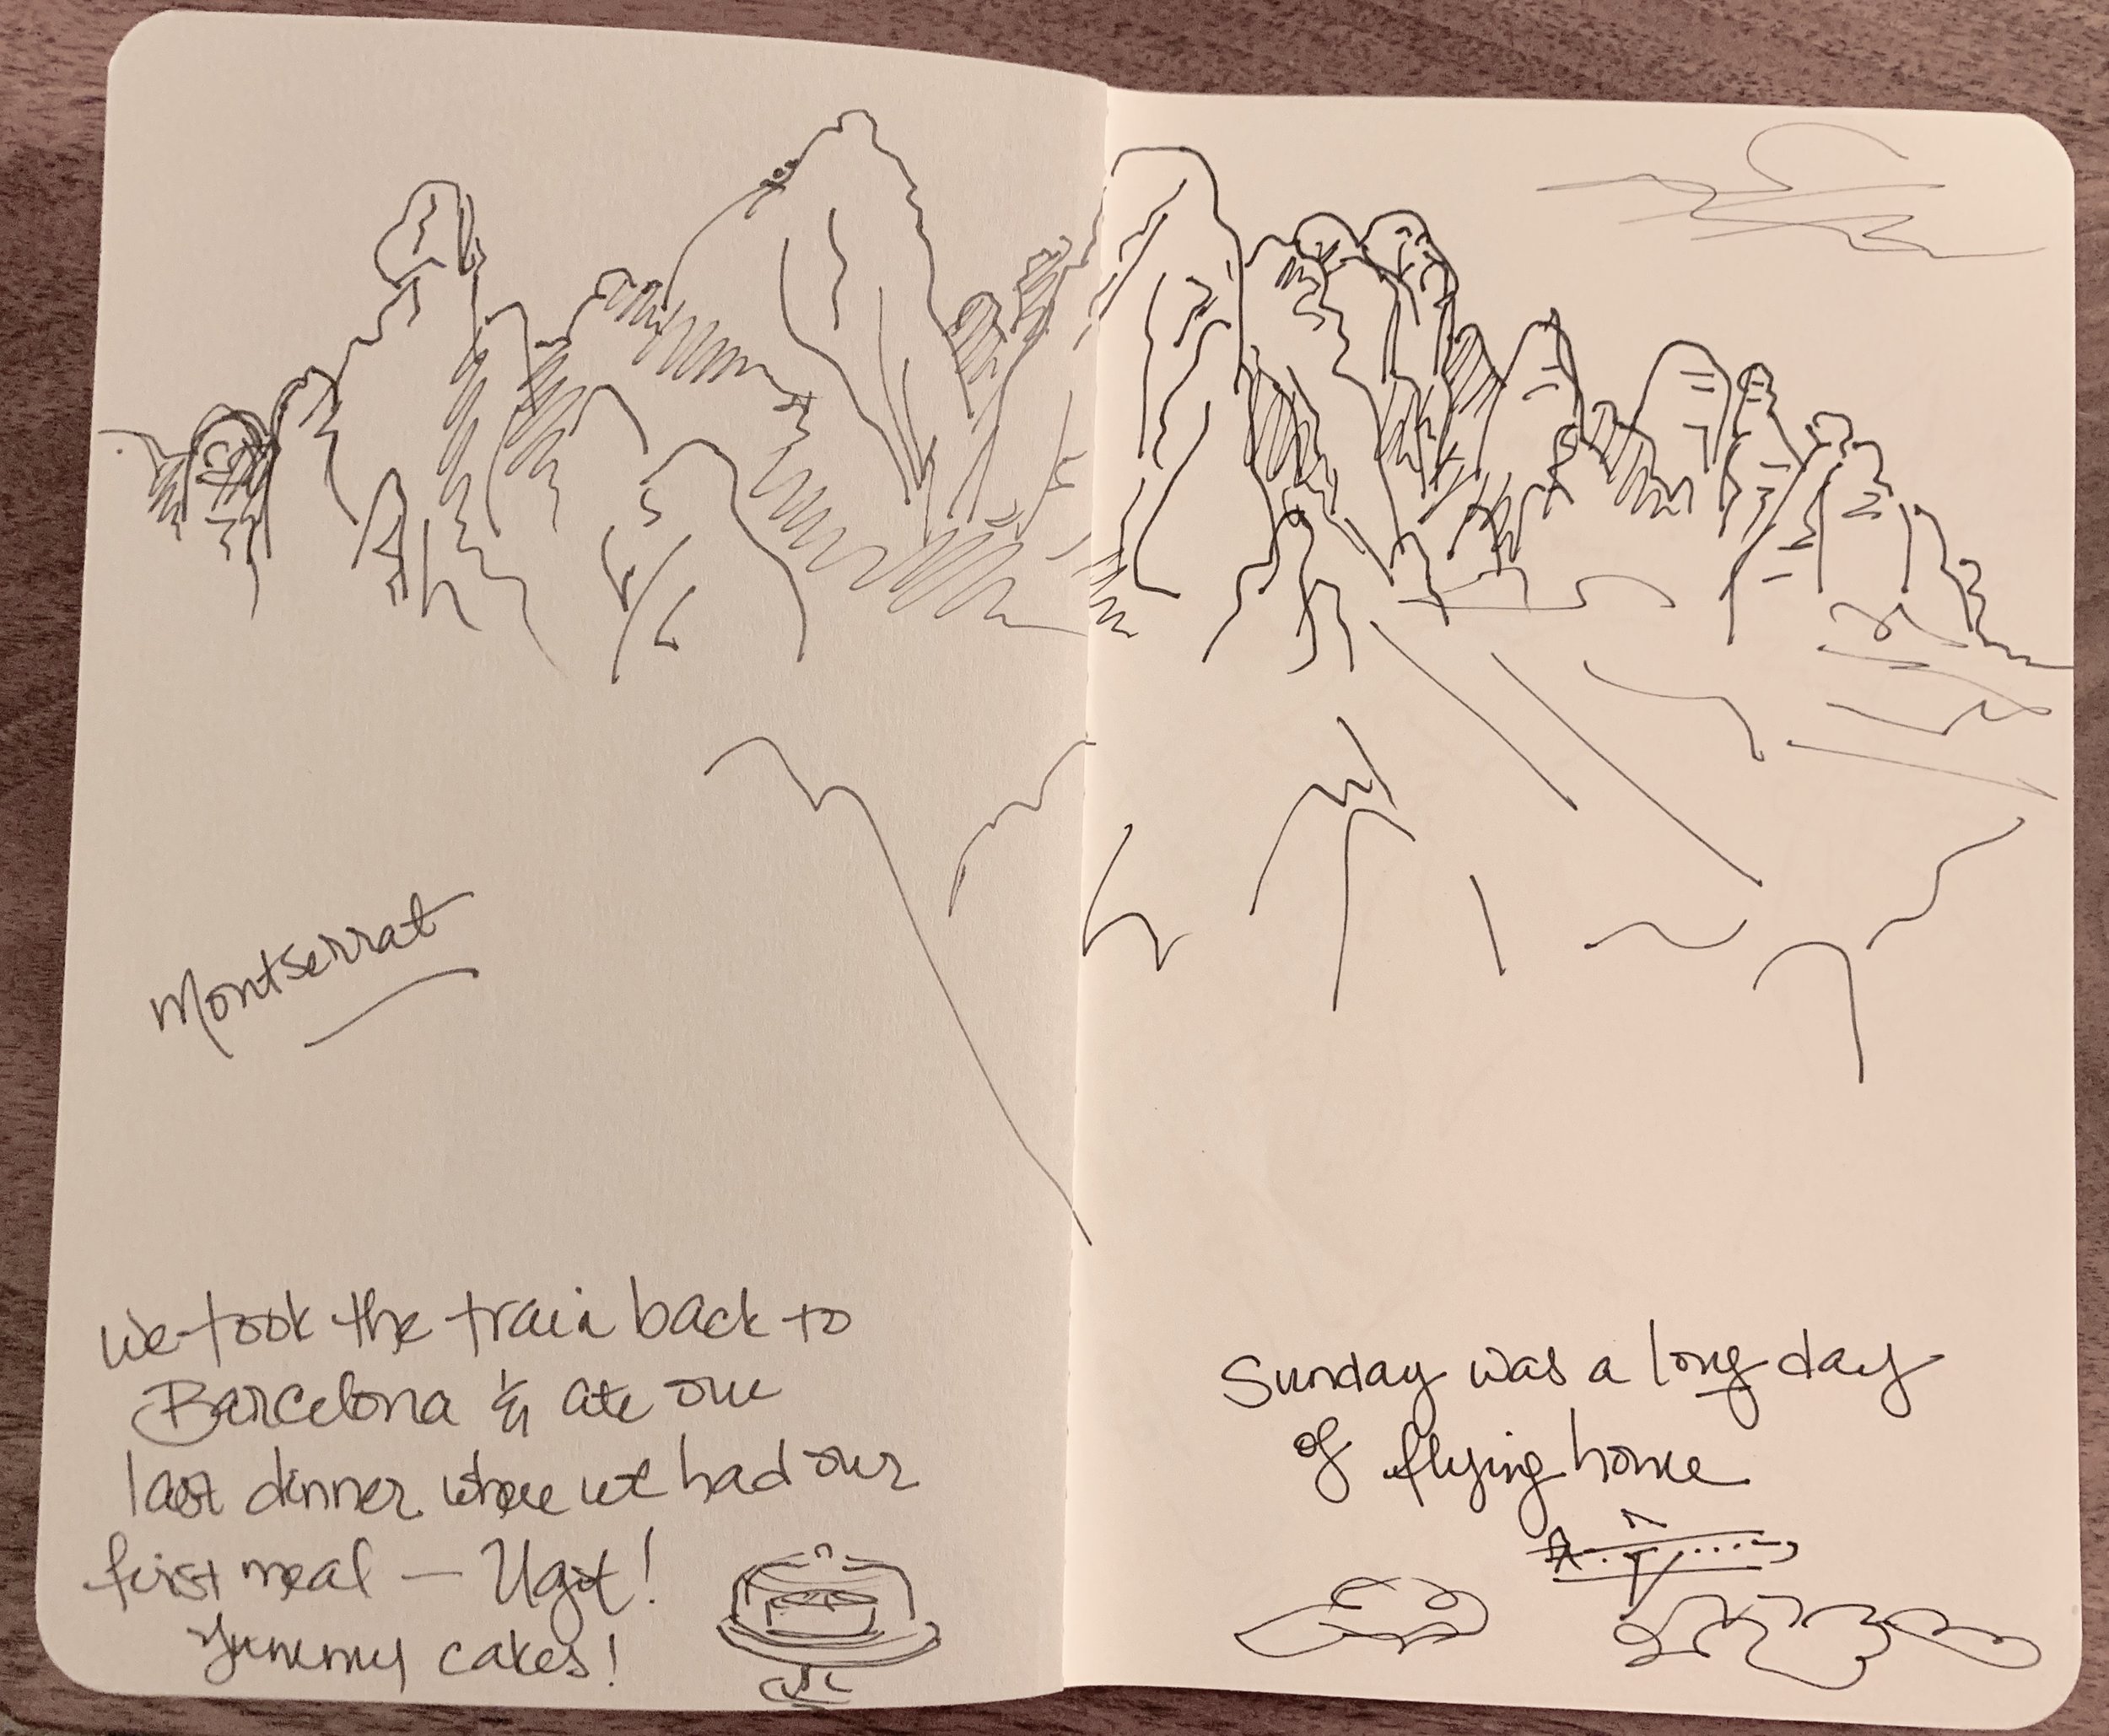 Montserrat
We took the train back to
Barcelona & ate our
last dinner where we had our
first meal — Ugot!
Yummy cakes!
Sunday was a long day
of flying home